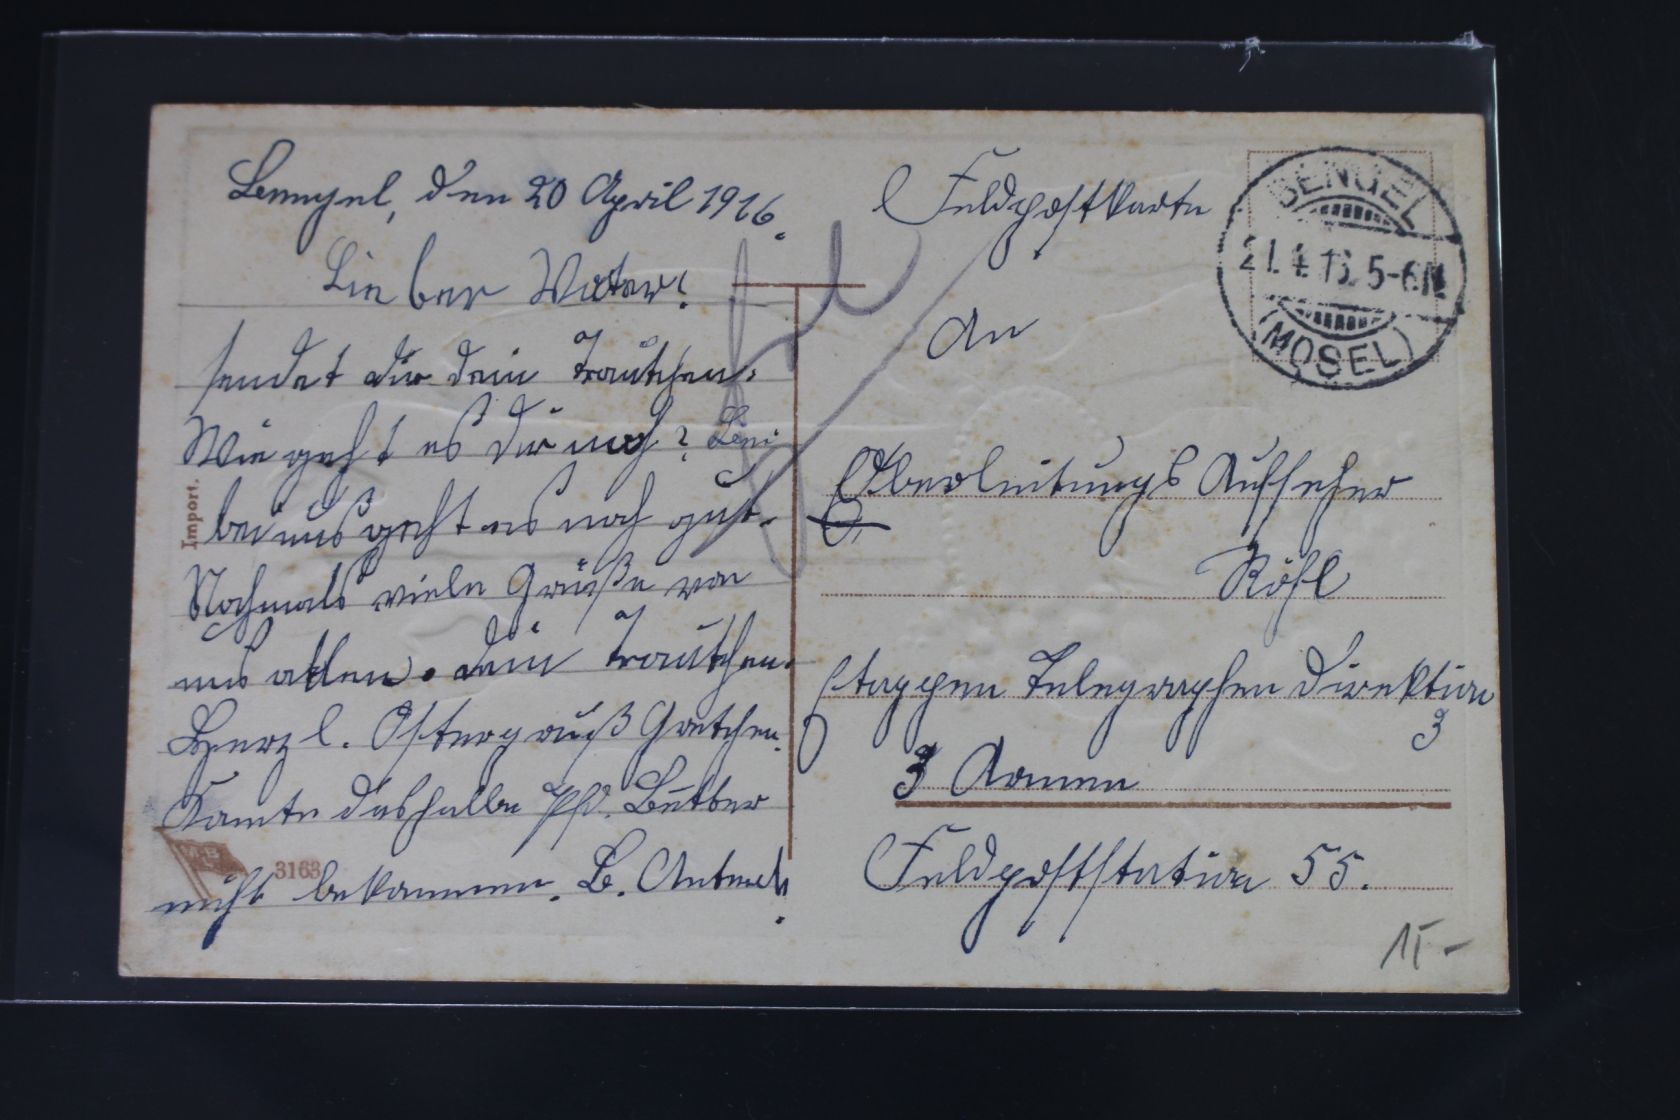 Bengel, den 20 April 1916.
Lieber Vater!
sendet dir dein Trautchen.
Wie geht es dir noch? Bei
bei uns geht es noch gut.
Nochmals viele Grüße von
uns allen. dein Trautchen.
Herzl. Ostergruß Gretchen.
Konnte deshalb Pfd. Butter
nicht bekommen. B.
Import.
3163
Feldpostkarte
BENGEL
21.4.16. 5-6N
(MOSEL)
An
Oberleitungs Aufseher
Röhl
Etappen Telegraphen Direktion
3
3 Armee
Feldpoststation 55.
15-